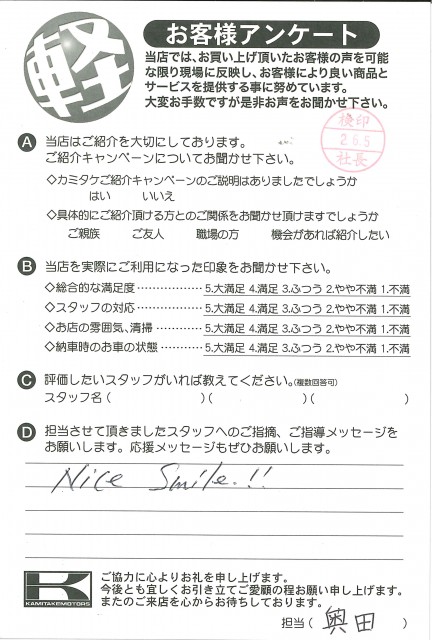 軽
お客様アンケート
当店では、お買い上げ頂いたお客様の声を可能
な限り現場に反映し、お客様により良い商品と
サービスを提供する事に努めています。
大変お手数ですが是非お声をお聞かせ下さい。
検印
2 6.5
社長
A 当店はご紹介を大切にしております。
ご紹介キャンペーンについてお聞かせ下さい。
◇カミタケご紹介キャンペーンのご説明はありましたでしょうか
はい いいえ
◇具体的にご紹介頂ける方とのご関係をお聞かせ頂けますでしょうか
ご親族 ご友人 職場の方 機会があれば紹介したい
B 当店を実際にご利用になった印象をお聞かせ下さい。
◇総合的な満足度 ……………… 5.大満足 4.満足 3.ふつう 2.やや不満 1.不満
◇スタッフの対応 ……………… 5.大満足 4.満足 3.ふつう 2.やや不満 1.不満
◇お店の雰囲気、清掃 ………… 5.大満足 4.満足 3.ふつう 2.やや不満 1.不満
◇納車時のお車の状態 ………… 5.大満足 4.満足 3.ふつう 2.やや不満 1.不満
C 評価したいスタッフがいれば教えてください。(複数回答可)
スタッフ名 ( )( )( )
D 担当させて頂きましたスタッフへのご指摘、ご指導メッセージを
お願いします。応援メッセージもぜひお願いします。
Nice Smile.!!
K
KAMITAKEMOTORS
ご協力に心よりお礼を申し上げます。
今後とも宜しくお引き立てご愛顧の程お願い申し上げます。
またのご来店を心からお待ちしております。
担当 ( 奥田 )